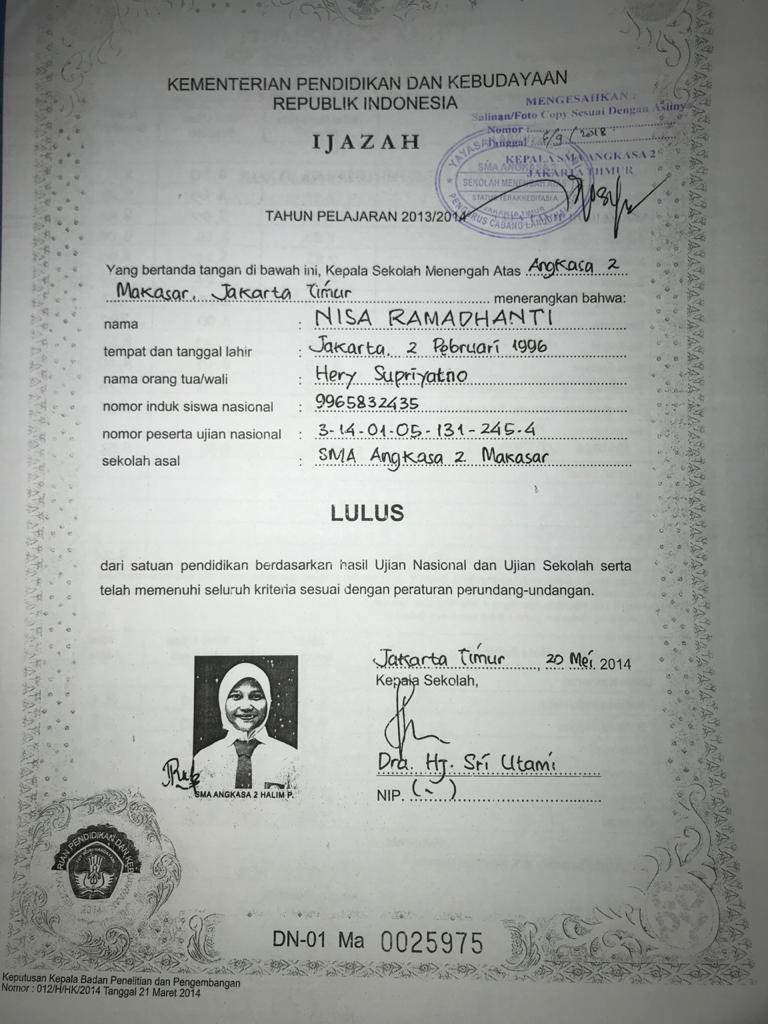 KEMENTERIAN PENDIDIKAN DAN KEBUDAYAAN
REPUBLIK INDONESIA
IJAZAH
MENGESAHKAN :
Salinan/Foto Copy Sesuai Dengan Aslinya
Nomor :
Tanggal : 6/9/2018
KEPALA SMA ANGKASA 2
JAKARTA TIMUR
SMA ANGKASA 2
SEKOLAH MENENGAH ATAS
STATUS TERAKREDITASI A
JAKARTA TIMUR
PENGURUS CABANG LANUD
TAHUN PELAJARAN 2013/2014
Yang bertanda tangan di bawah ini, Kepala Sekolah Menengah Atas Angkasa 2
Makasar, Jakarta Timur menerangkan bahwa:
nama : NISA RAMADHANTI
tempat dan tanggal lahir : Jakarta, 2 Pebruari 1996
nama orang tua/wali : Hery Supriyatno
nomor induk siswa nasional : 9965832435
nomor peserta ujian nasional : 3-14-01-05-131-245-4
sekolah asal : SMA Angkasa 2 Makasar
LULUS
dari satuan pendidikan berdasarkan hasil Ujian Nasional dan Ujian Sekolah serta
telah memenuhi seluruh kriteria sesuai dengan peraturan perundang-undangan.
Jakarta Timur, 20 Mei 2014
Kepala Sekolah,
Dra. Hj. Sri Utami
NIP. (-)
SMA ANGKASA 2 HALIM P.
DN-01 Ma 0025975
Keputusan Kepala Badan Penelitian dan Pengembangan
Nomor : 012/H/HK/2014 Tanggal 21 Maret 2014